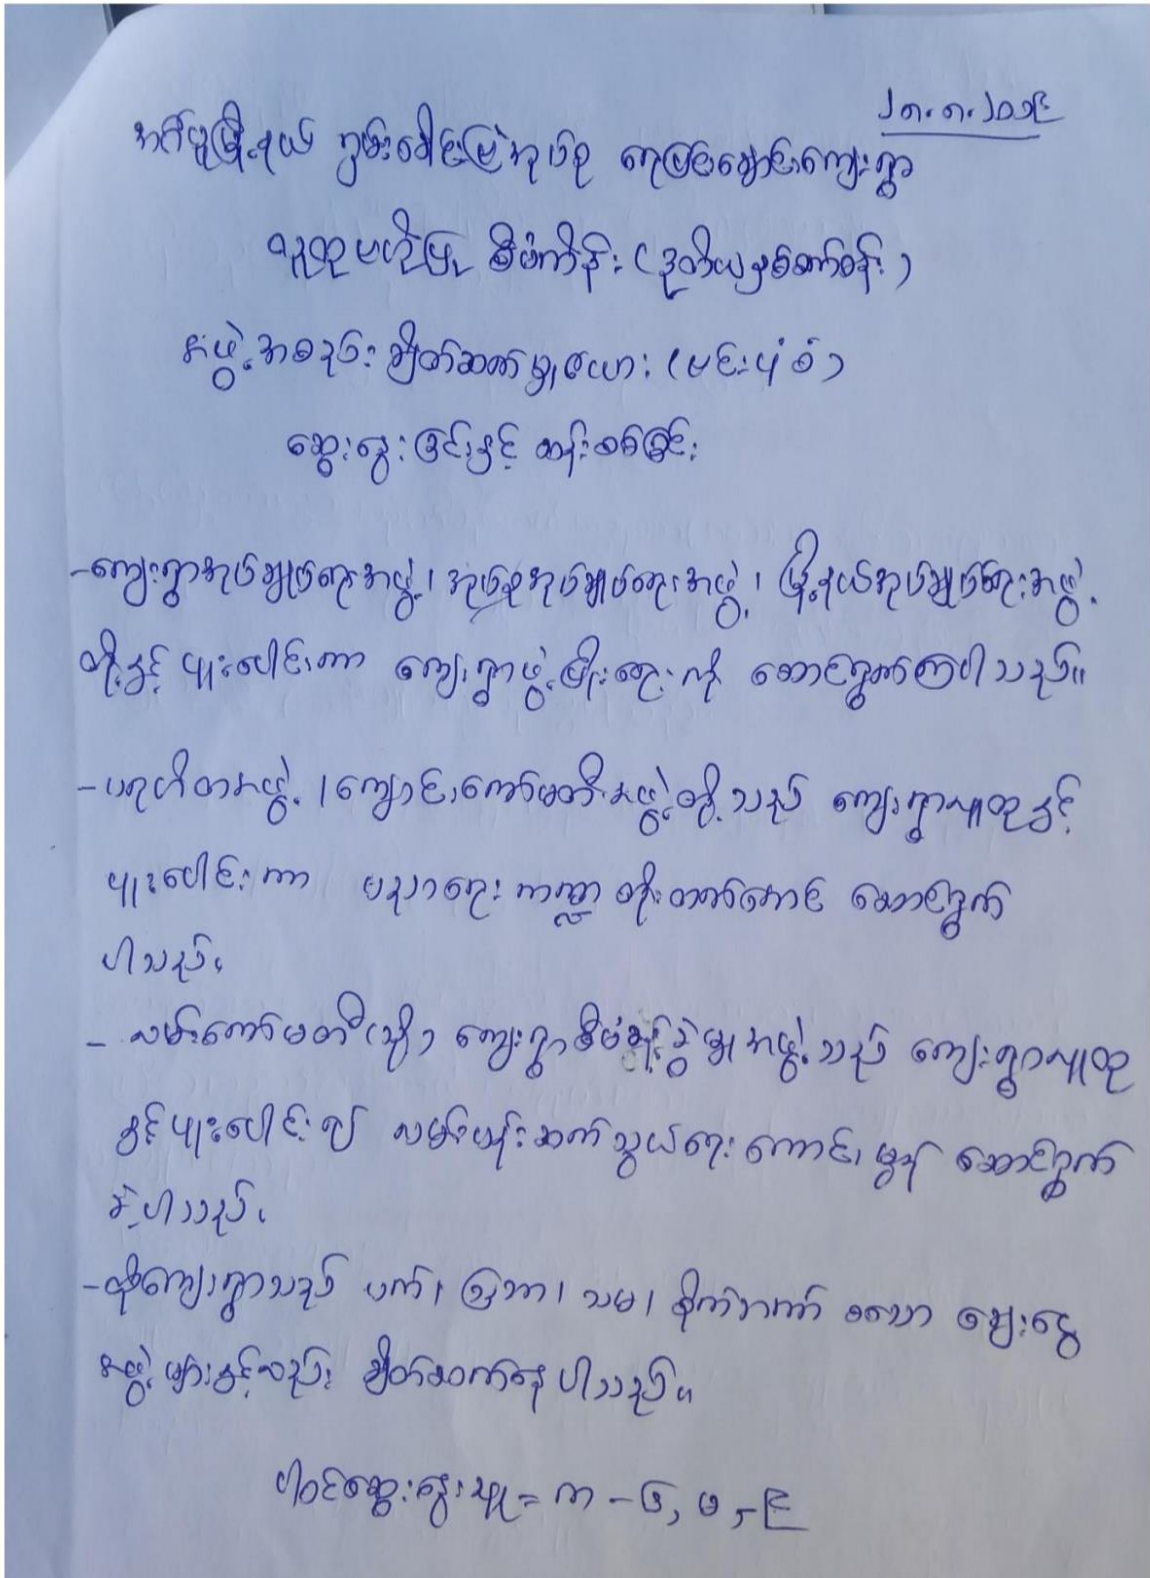 ၂၈.၈.၂၀၁၉
အင်္ဂပူမြို့နယ် ကျွန်းခေါင်းမြဲအုပ်စု ရေမြင်းချောင်းကျေးရွာ
လူထုဗဟိုပြု စီမံကိန်း (ဒုတိယနှစ်စက်ဝန်း)
အဖွဲ့အစည်း ချိတ်ဆက်မှုဇယား (ဗင်းပုံစံ)
ဆွေးနွေးခြင်းနှင့် ဆန်းစစ်ခြင်း
-ကျေးရွာအုပ်ချုပ်ရေးအဖွဲ့၊ အုပ်စုအုပ်ချုပ်ရေးအဖွဲ့၊ မြို့နယ်အုပ်ချုပ်ရေးအဖွဲ့
တို့နှင့် ပူးပေါင်းကာ ကျေးရွာဖွံ့ဖြိုးရေးကို ဆောင်ရွက်ကြပါသည်။
-ပရဟိတအဖွဲ့၊ကျောင်းကော်မတီအဖွဲ့တို့သည် ကျေးရွာလူထုနှင့်
ပူးပေါင်းကာ ပညာရေးကဏ္ဍ တိုးတက်အောင် ဆောင်ရွက်
ပါသည်။
- လမ်းကော်မတီ(သို့) ကျေးရွာစီမံခန့်ခွဲမှုအဖွဲ့သည် ကျေးရွာလူထု
နှင့်ပူးပေါင်း၍ လမ်းပန်းဆက်သွယ်ရေး ကောင်းမွန် ဆောင်ရွက်
ခဲ့ပါသည်။
-ထိုကျေးရွာသည် ပက်၊ ဩဘာ၊ သမ၊ စိုက်ဘဏ် စသော ချေးငွေ
အဖွဲ့များနှင့်လည်း ချိတ်ဆက်နေပါသည်။
ပါဝင်ဆွေးနွေးသူ = က - ၆, မ - ၉